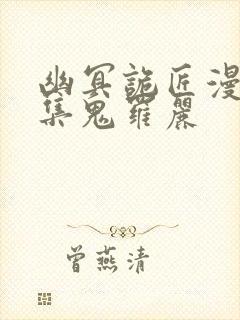 幽冥詭匠漫
集鬼羅麗
曾燕清